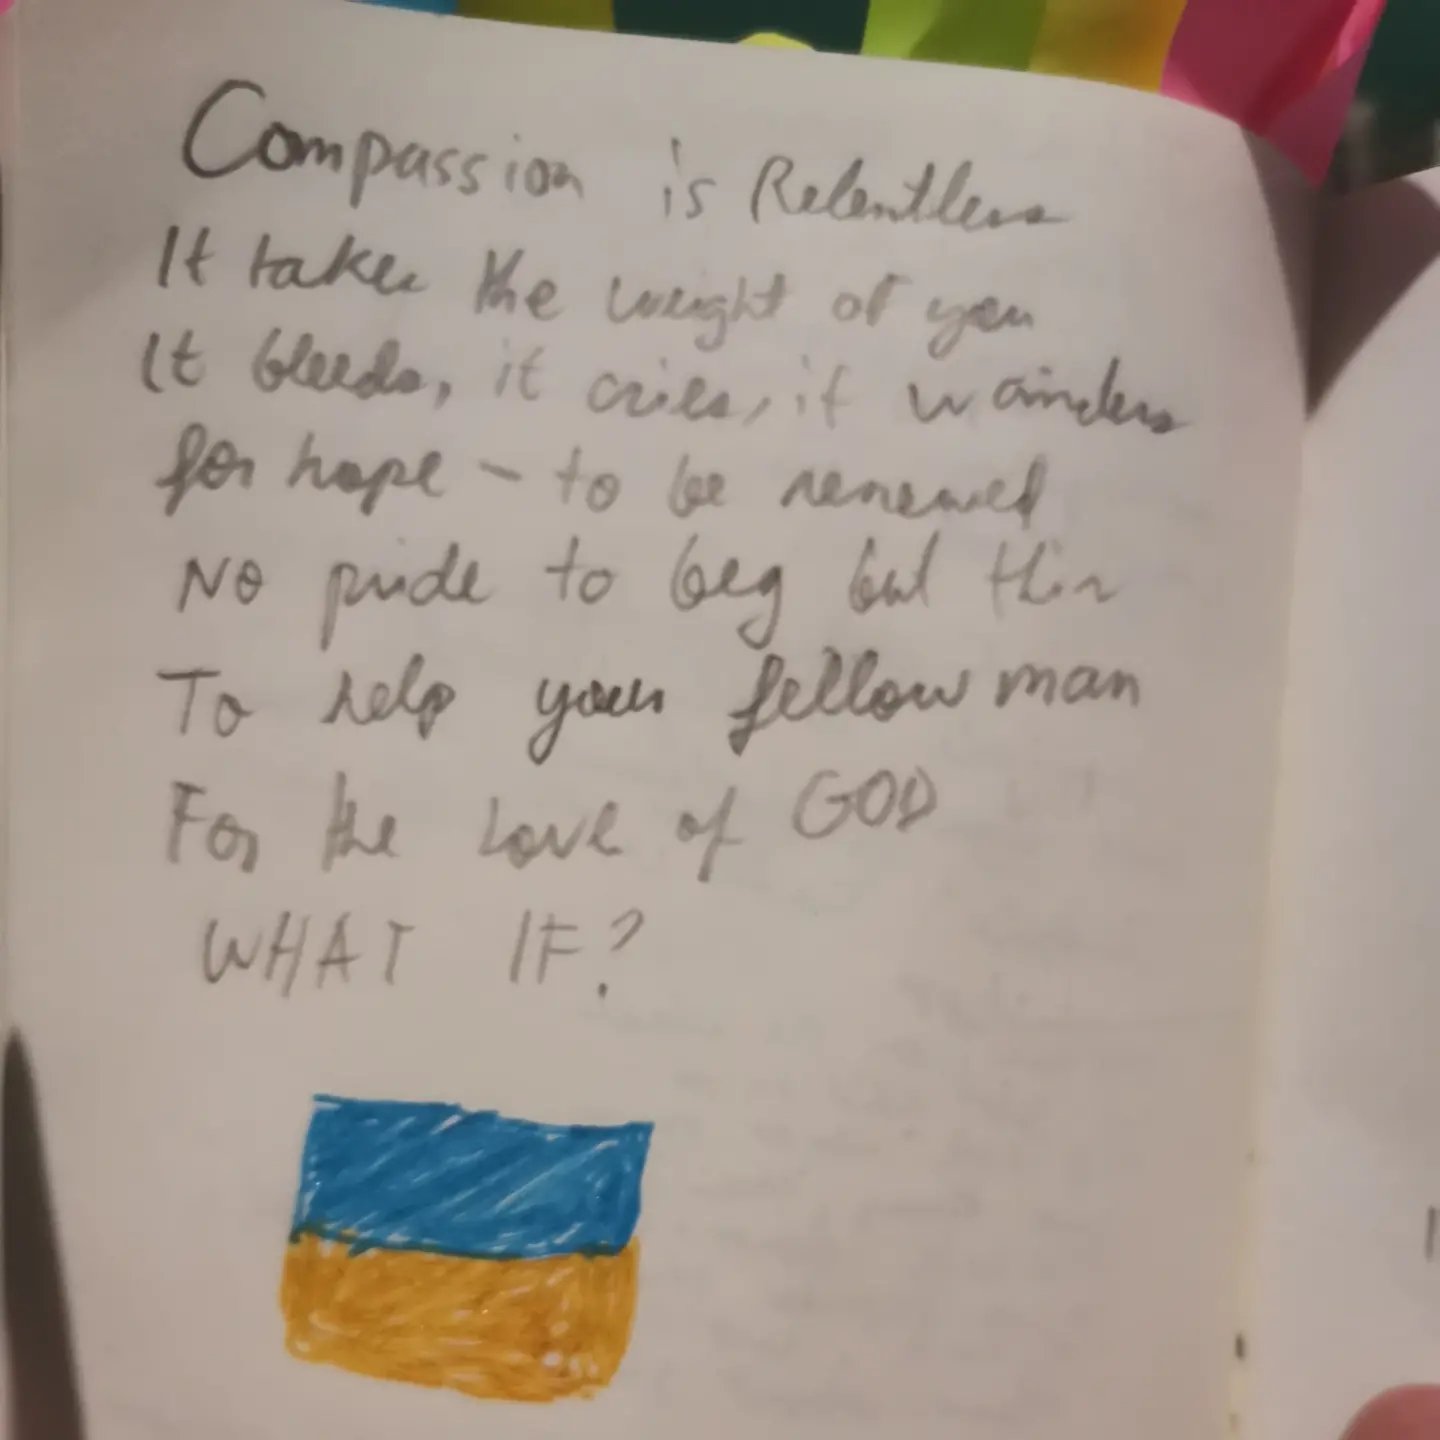 Compassion is Relentless
It takes the weight of you
It bleeds, it cries, it wanders
for hope - to be renewed
No pride to beg but this
To help your fellow man
For the Love of GOD
WHAT IF?